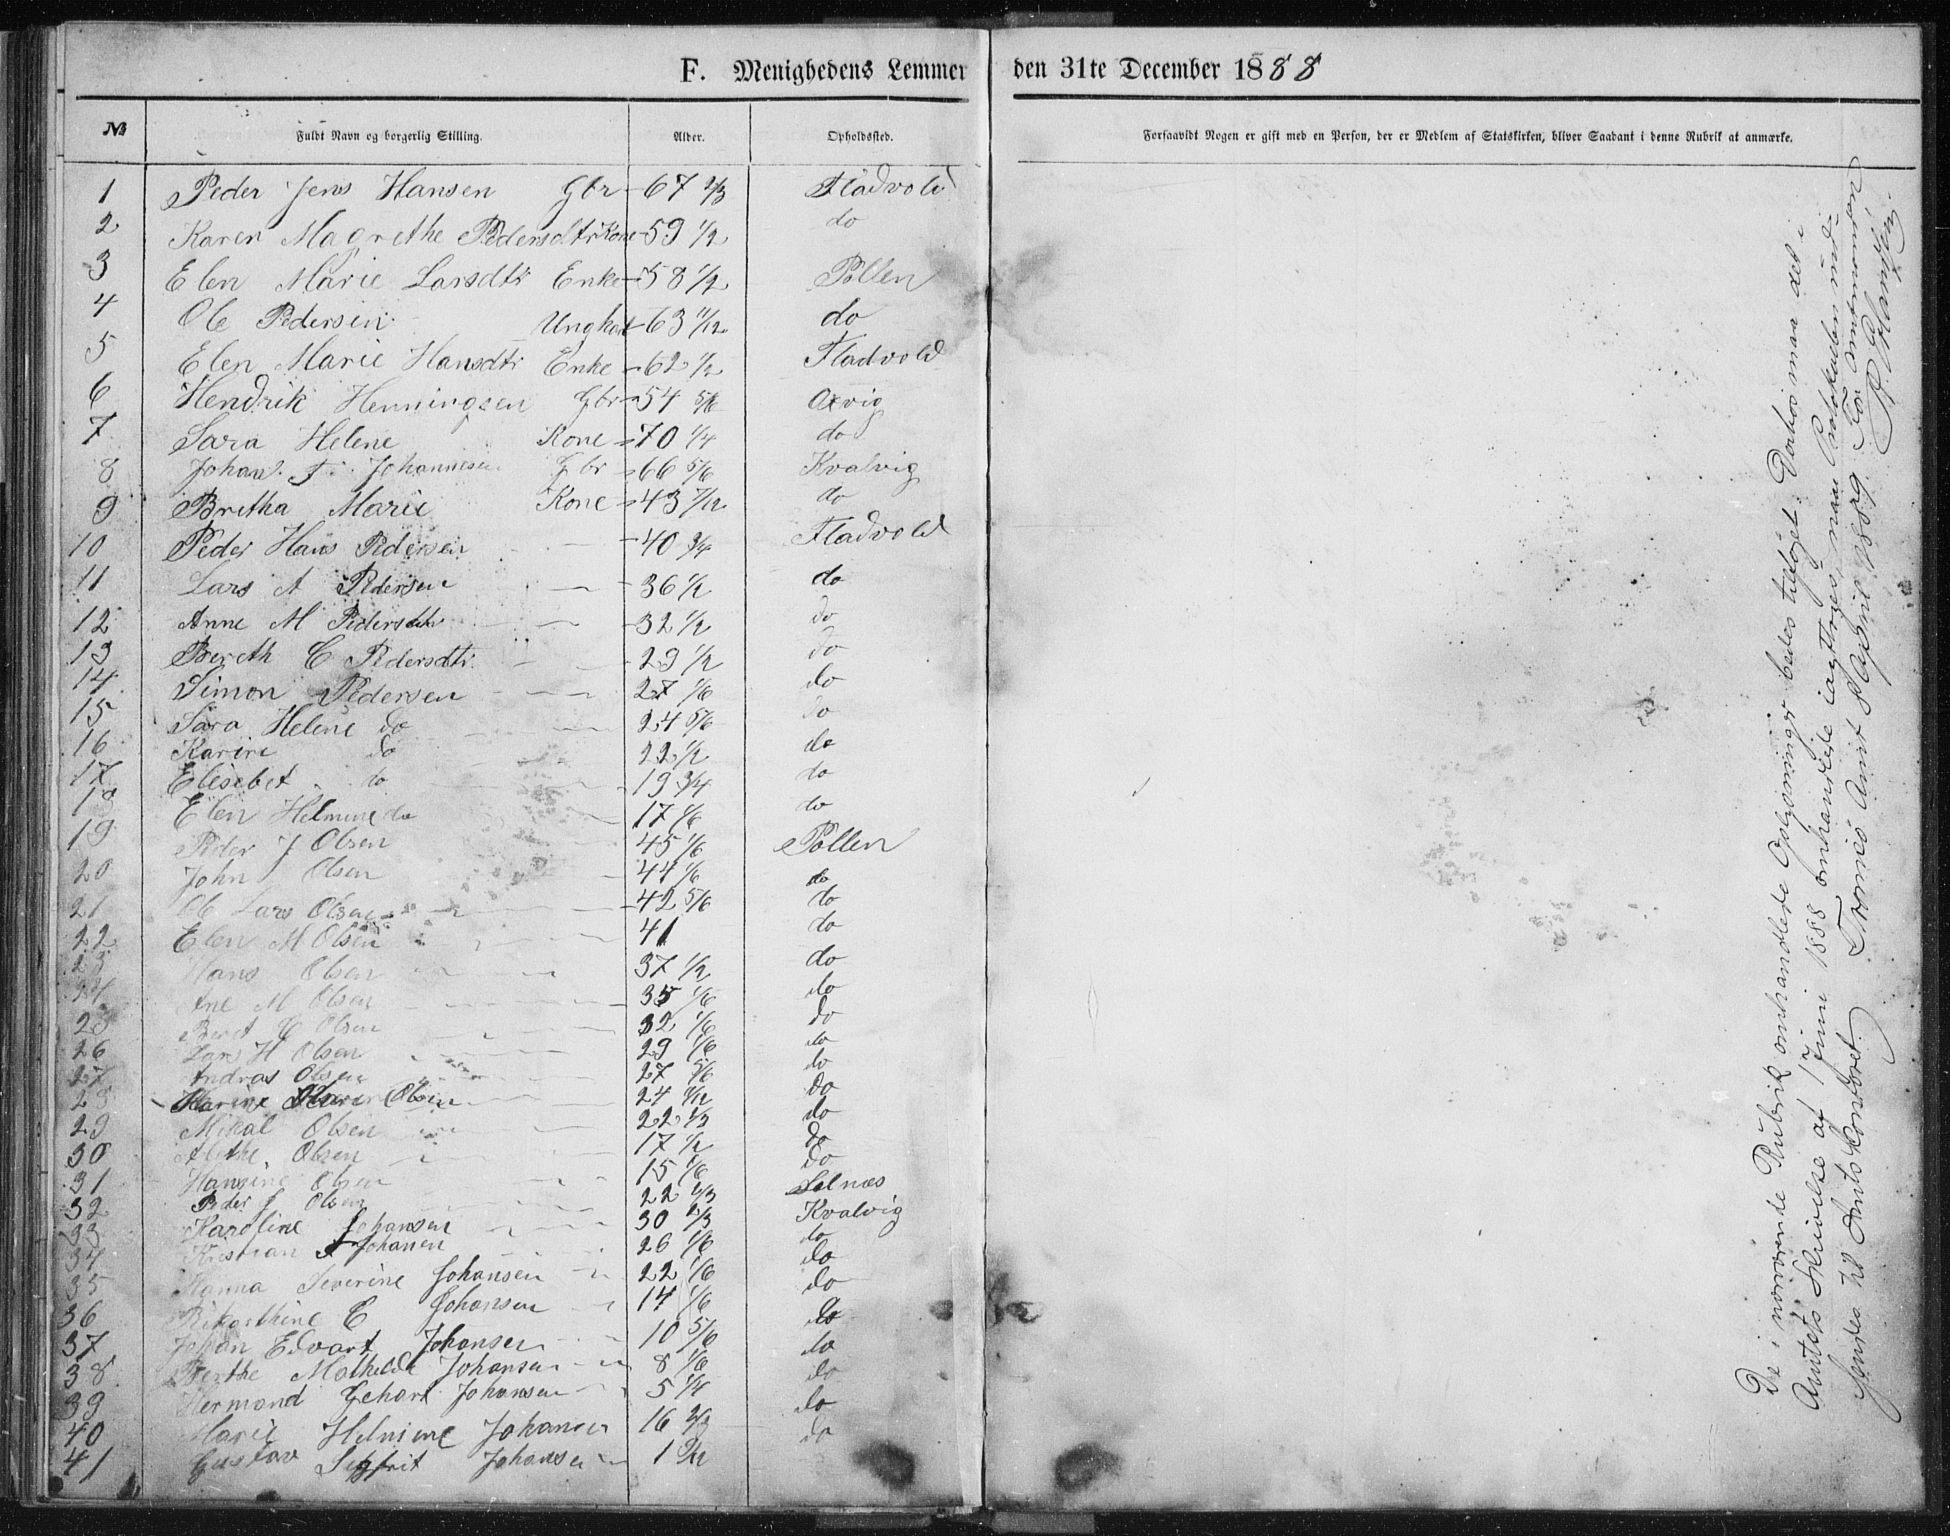 F. Menighedens Lemmer den 31te December 1888
№ Fuldt Navn og borgerlig Stilling. Alder. Opholdssted. Forsaavidt Nogen er gift med en Person, der er Medlem af Statskirken, bliver Saadant i denne Rubrik at anmærke.
1 Peder Jens Hansen Gbr 67 2/3 Fladvold
2 Karen Magrethe Pedersdtr Kone 59 1/2 do
3 Elen Marie Larsdtr Enke 58 1/2 Pollen
4 Ole Pedersen Ungkarl 63 11/12 do
5 Elen Marie Hansdtr Enke 62 1/2 Fladvold
6 Hendrik Henningsen Gbr 54 5/6
7 Sara Helene Kone 70 1/4 do
8 Johan J. Johannesen Gbr 66 5/6 Kvalvig
9 Britha Marie Kone 43 7/12 do
10 Peder Hans Pedersen 40 3/4 Fladvold
11 Lars A Pedersen 36 1/2 do
12 Anne M Pedersdtr 32 1/2 do
13 Bereth C Pedersdtr 29 1/2 do
14 Simon Pedersen 27 1/6 do
15 Sara Helene do 24 5/6 do
16 Karine do 22 1/2 do
17 Elisebet do 19 3/4 do
18 Elen Helmine do 17 1/6 do
19 Peder J Olsen 45 1/6 Pollen
20 John Olsen 44 1/6 do
21 Ole Lars Olsen 42 5/6 do
22 Elen M Olsen 41 do
23 Hans Olsen 37 1/2 do
24 Ane M Olsen 35 1/6 do
25 Beret C Olsen 32 1/6 do
26 Lars H Olsen 29 1/6 do
27 Andras Olsen 27 5/6 do
28 Karine Olsen 24 do
29 Mikal Olsen 22 1/3 do
30 Alethe Olsen 17 1/2 do
31 Hansine Olsen 15 1/6 do
32 Peder J Olsen 22 2/3 Selnæs
33 Karoline Johansen 30 1/3 Kvalvig
34 Kristian J Johansen 26 1/6 do
35 Hanna Severine Johansen 22 1/6 do
36 E Johansen 14 1/6 do
37 Johan Edvart Johansen 10 5/6 do
38 Berthe Mathilde Johansen 8 1/6 do
39 Hermand Gehart Johansen 5 1/4 do
40 Marie Helmine Johansen 16 2/3 do
41 Gustav Sigfrit Johansen 1 do
De i nærværende Rubrik omhandlede Oplysninger bedes tilføiet. Derhos maa det i
Amtets Skrivelse af 17 Juni 1888 omhandlede iagttages, naar Protokollen ind-
sendes til Amtskontoret. Tromsø Amt 8 April 1889. For Amtmanden
R. Hansen.